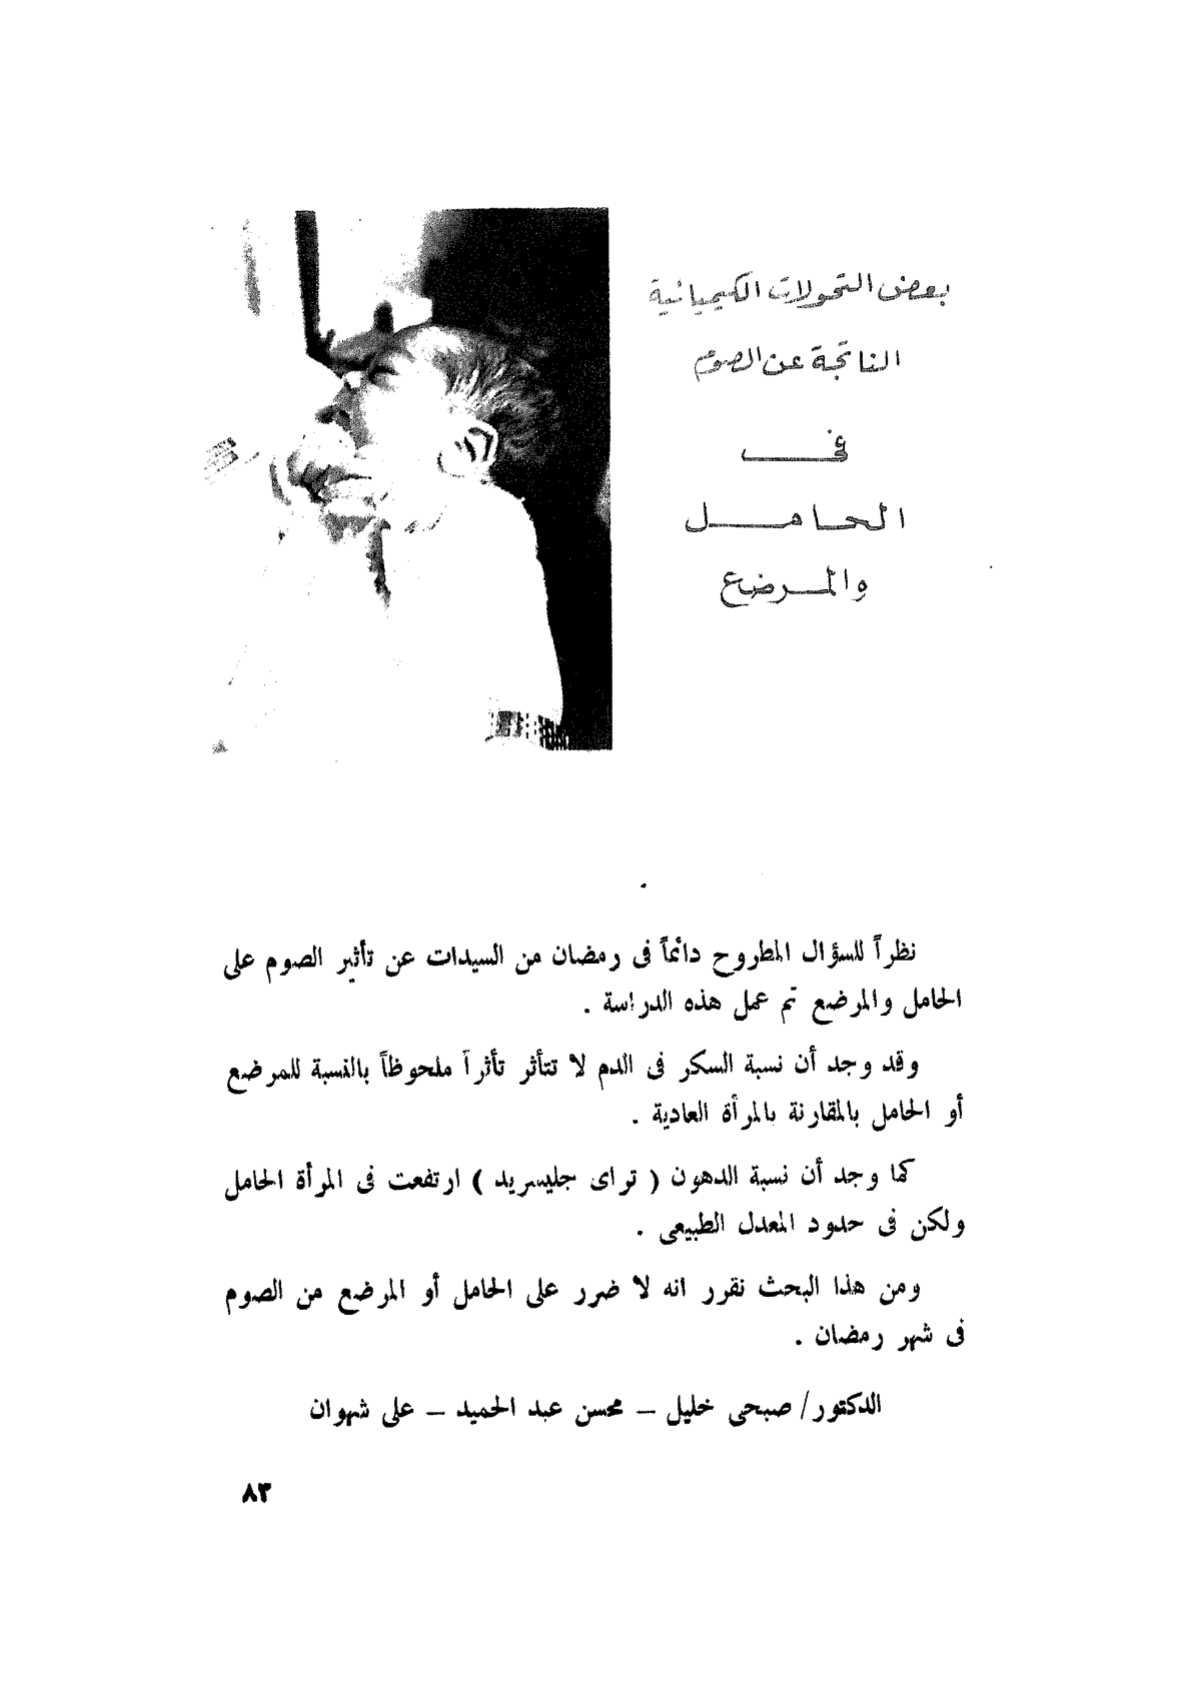 بعض التحولات الكيميائية
الناتجة عن الصوم
فى
الحامل
والمرضع
نظراً للسؤال المطروح دائماً فى رمضان من السيدات عن تأثير الصوم على
الحامل والمرضع تم عمل هذه الدراسة .
وقد وجد أن نسبة السكر فى الدم لا تتأثر تأثرآ ملحوظاً بالنسبة للمرضع
أو الحامل بالمقارنة بالمرأة العادية .
كما وجد أن نسبة الدهون ( تراى جليسريد ) ارتفعت فى المرأة الحامل
ولكن فى حدود المعدل الطبيعى .
ومن هذا البحث نقرر انه لا ضرر على الحامل أو المرضع من الصوم
فى شهر رمضان .
الدكتور/ صبحى خليل – محسن عبد الحميد – على شهوان
٨٣